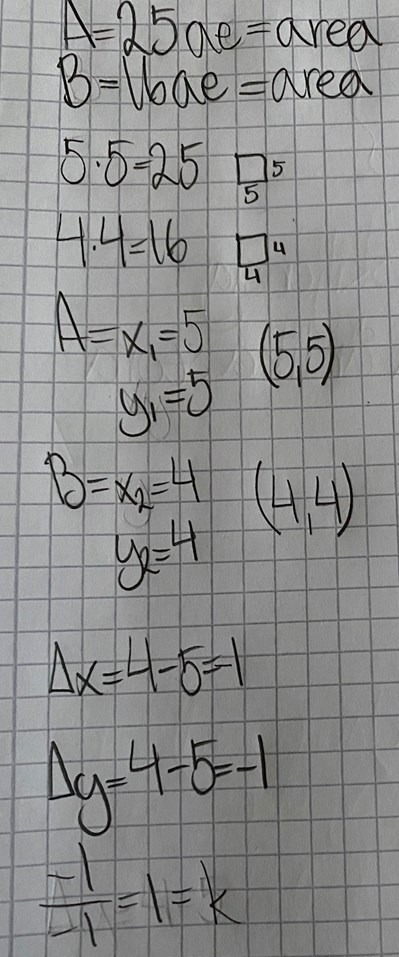 A=25ae=area
B=16ae=area
5·5=25 5 5
4·4=16 4 4
A=x₁=5 (5,5)
y₁=5
B=x₂=4 (4,4)
y₂=4
Δx=4-5=-1
Δy=4-5=-1
-1/-1=1=k